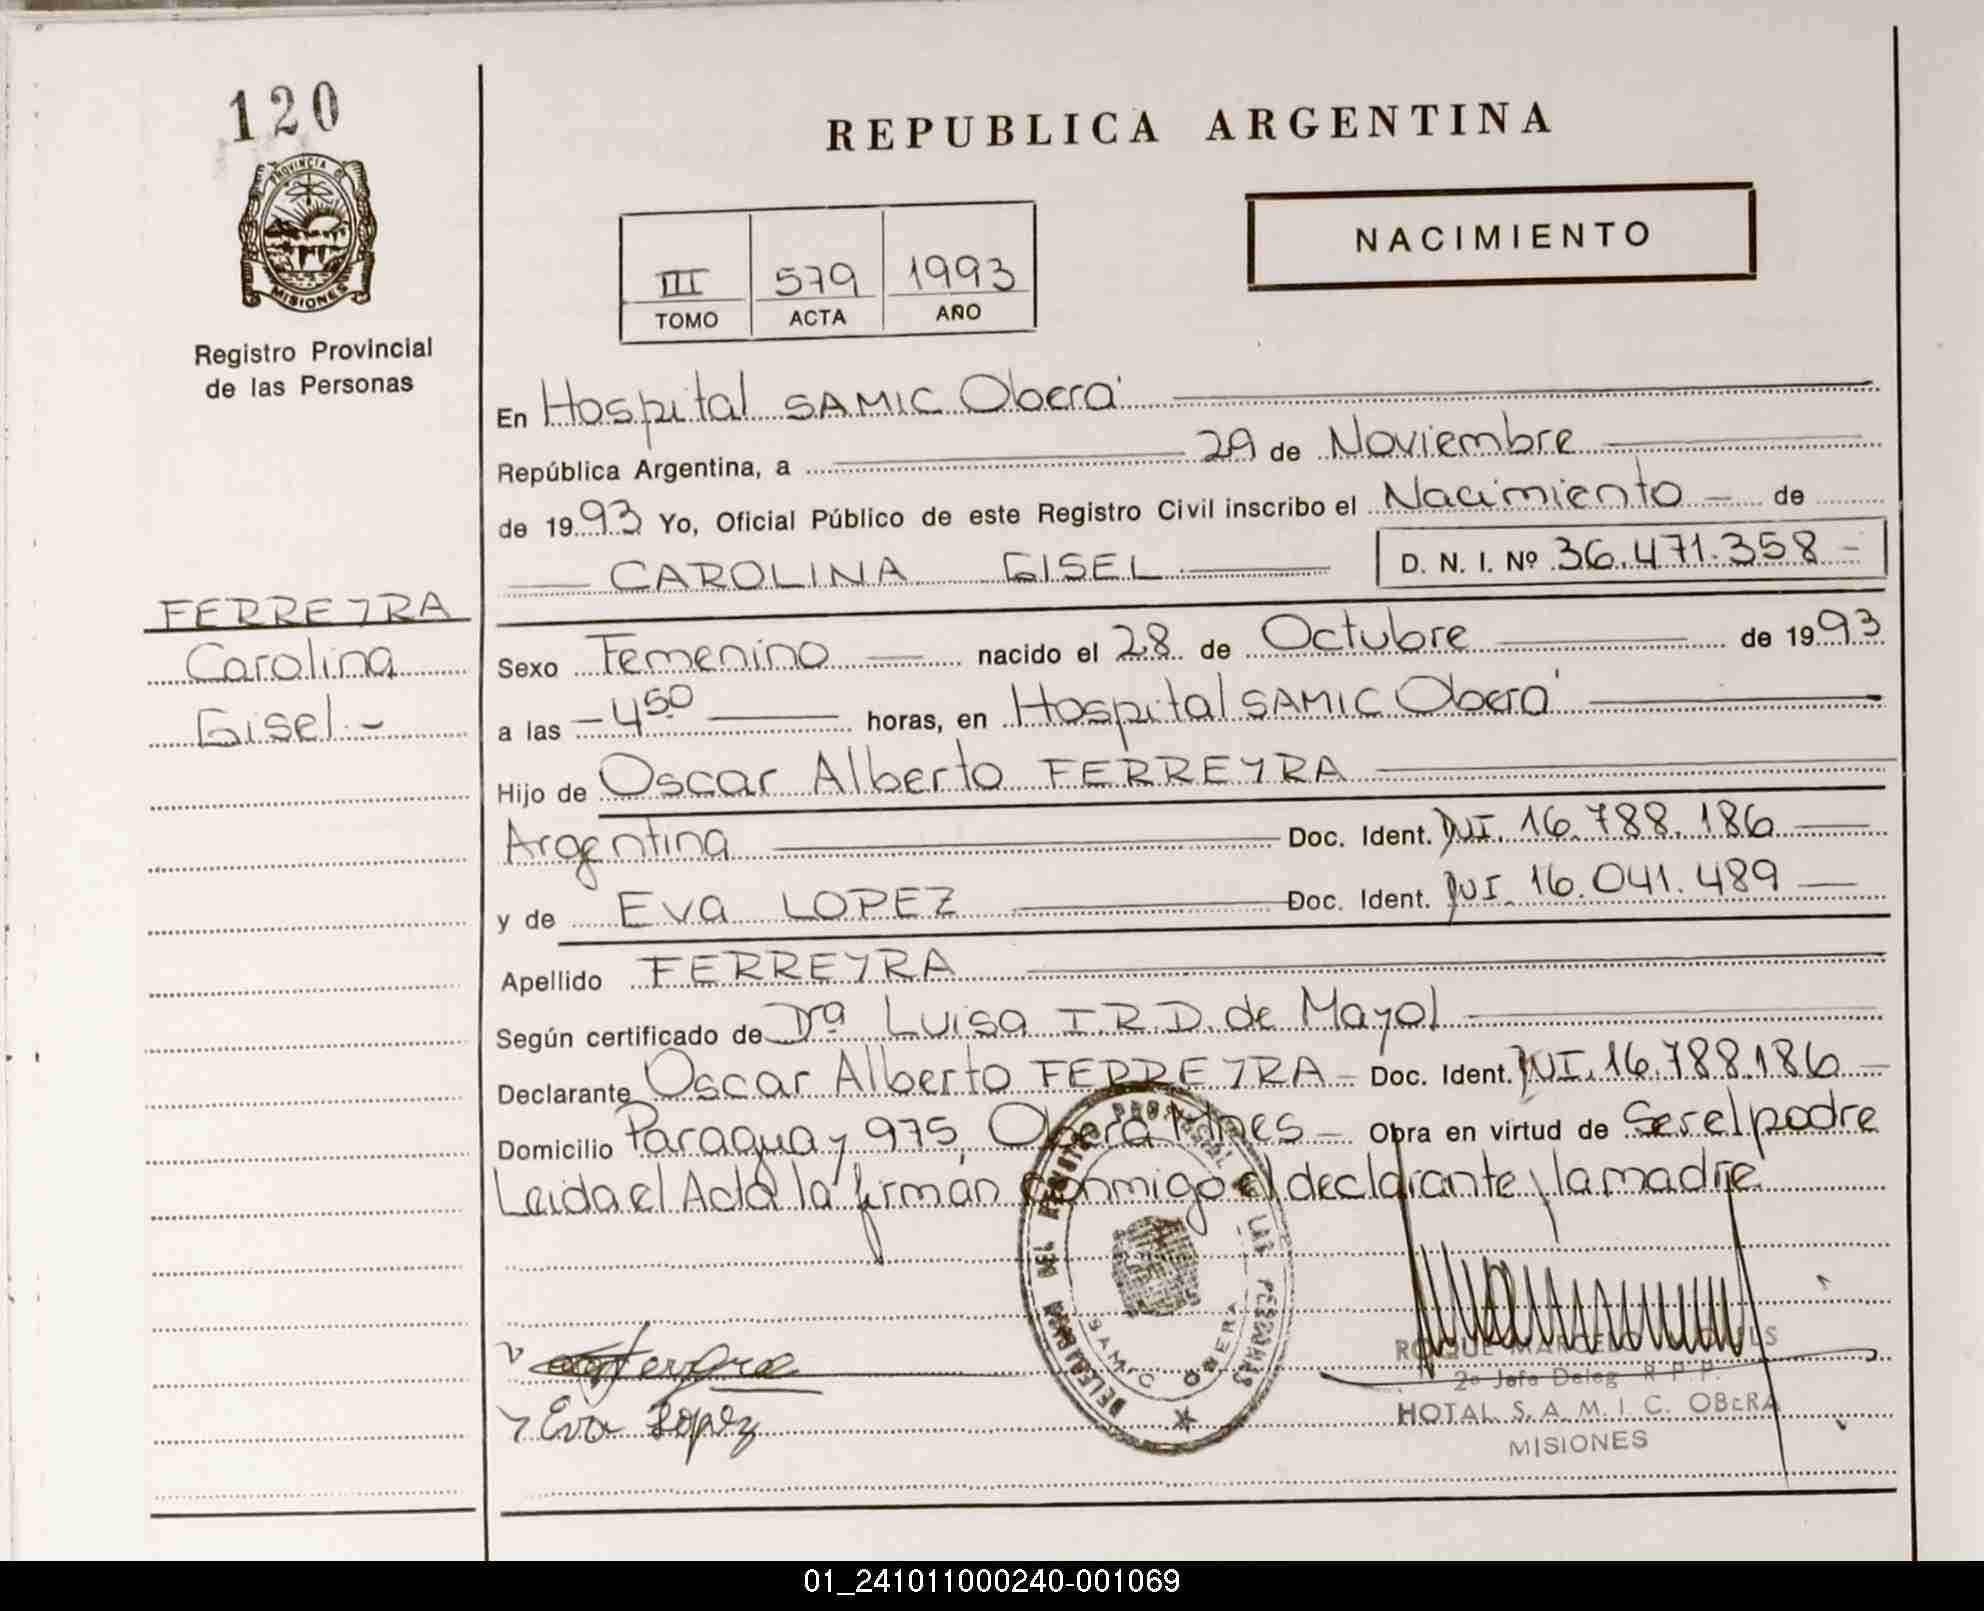 120
PROVINCIA DE
MISIONES
Registro Provincial
de las Personas
REPUBLICA ARGENTINA
NACIMIENTO
III 579 1993
TOMO ACTA AÑO
En Hospital SAMIC Oberá
República Argentina, a 29 de Noviembre
de 1993 Yo, Oficial Público de este Registro Civil inscribo el Nacimiento - de
CAROLINA GISEL D. N. I. Nº 36.471.358 -
FERREYRA
Carolina
Gisel.-
Sexo Femenino nacido el 28 de Octubre de 1993
a las - 4 50 horas, en Hospital SAMIC Oberá
Hijo de Oscar Alberto FERREYRA
Argentina Doc. Ident. DNI. 16.788.186
y de Eva LOPEZ Doc. Ident. DNI. 16.041.489
Apellido FERREYRA
Según certificado de Drª Luisa I.R.D. de Mayol
Declarante Oscar Alberto FERREYRA - Doc. Ident. DNI. 16.788.186
Domicilio Paraguay 975, Oberá Mnes - Obra en virtud de Ser el padre
Leida el Acta la firman conmigo el declarante y la madre
DELEGACION DEL REGISTRO PROVINCIAL DE LAS PERSONAS
SAMIC OBERA
Eva Lopez
2º Jefe Deleg R.P.P.
HOTAL S.A.M.I.C. OBERA
MISIONES
01_241011000240-001069